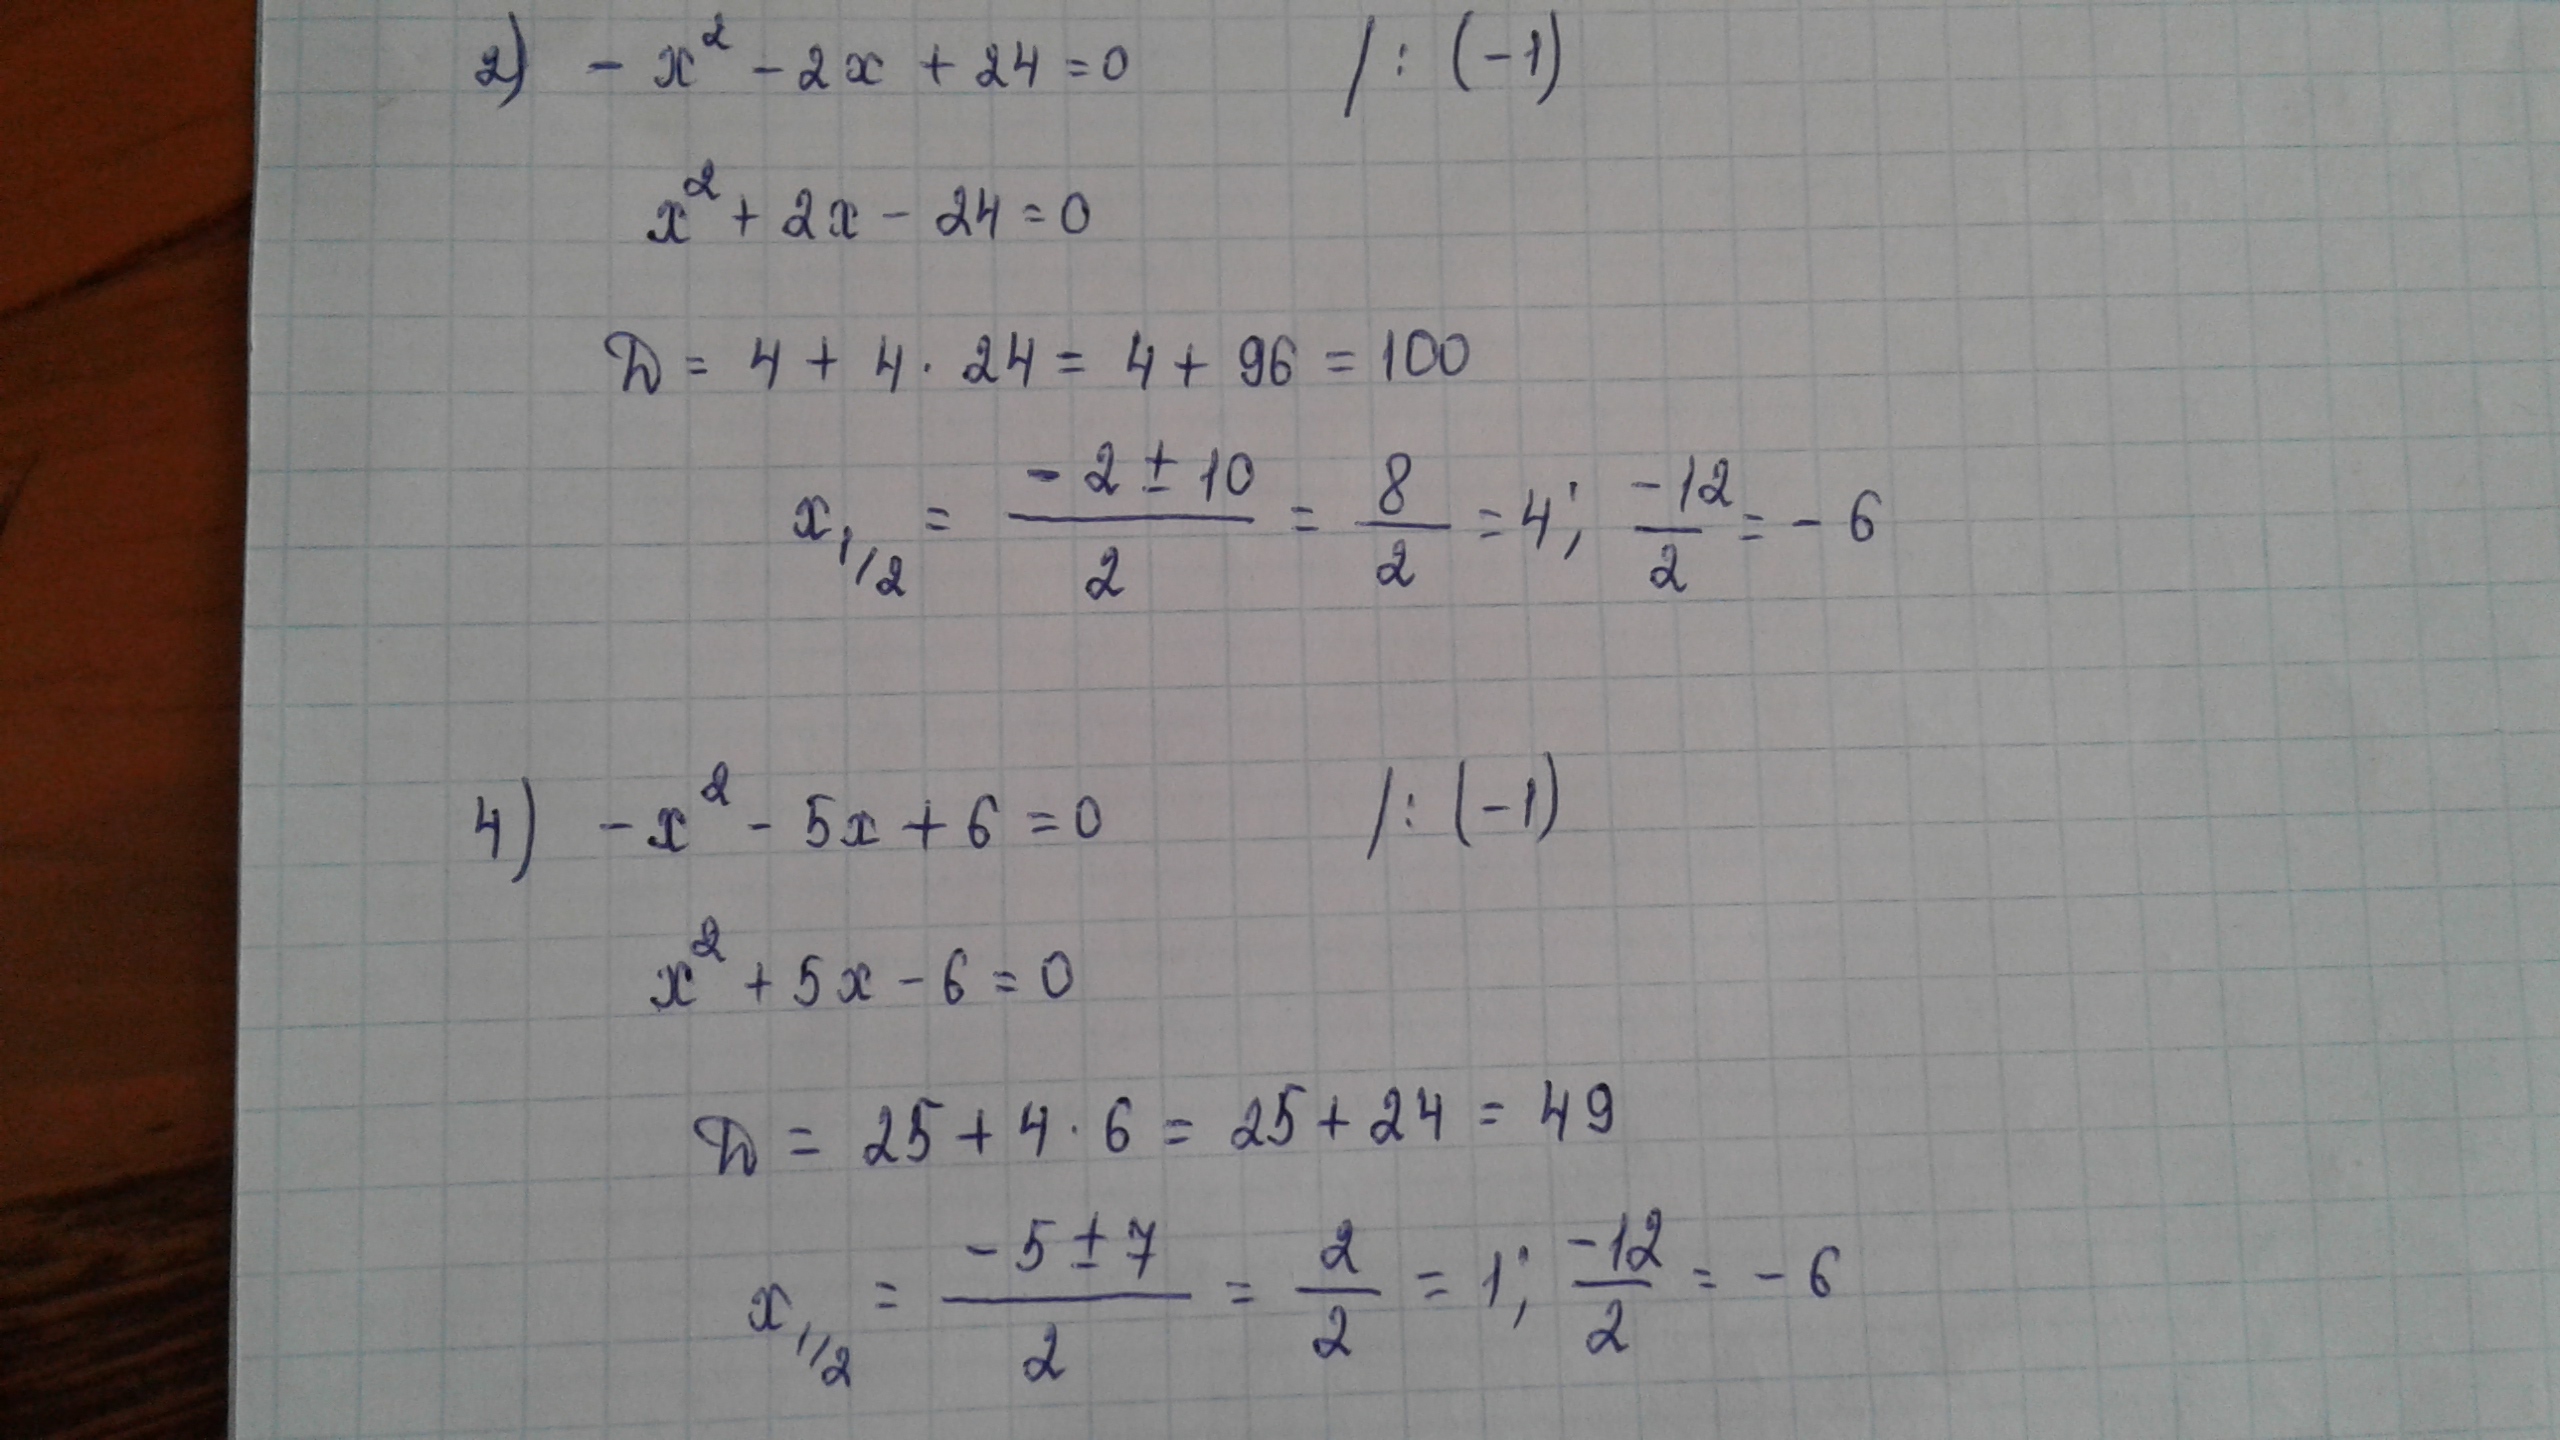 2) -x² - 2x + 24 = 0 /: (-1)
x² + 2x - 24 = 0
D = 4 + 4 · 24 = 4 + 96 = 100
x₁/₂ = (-2 ± 10)/2 = 8/2 = 4; -12/2 = -6
4) -x² - 5x + 6 = 0 /: (-1)
x² + 5x - 6 = 0
D = 25 + 4 · 6 = 25 + 24 = 49
x₁/₂ = (-5 ± 7)/2 = 2/2 = 1; -12/2 = -6